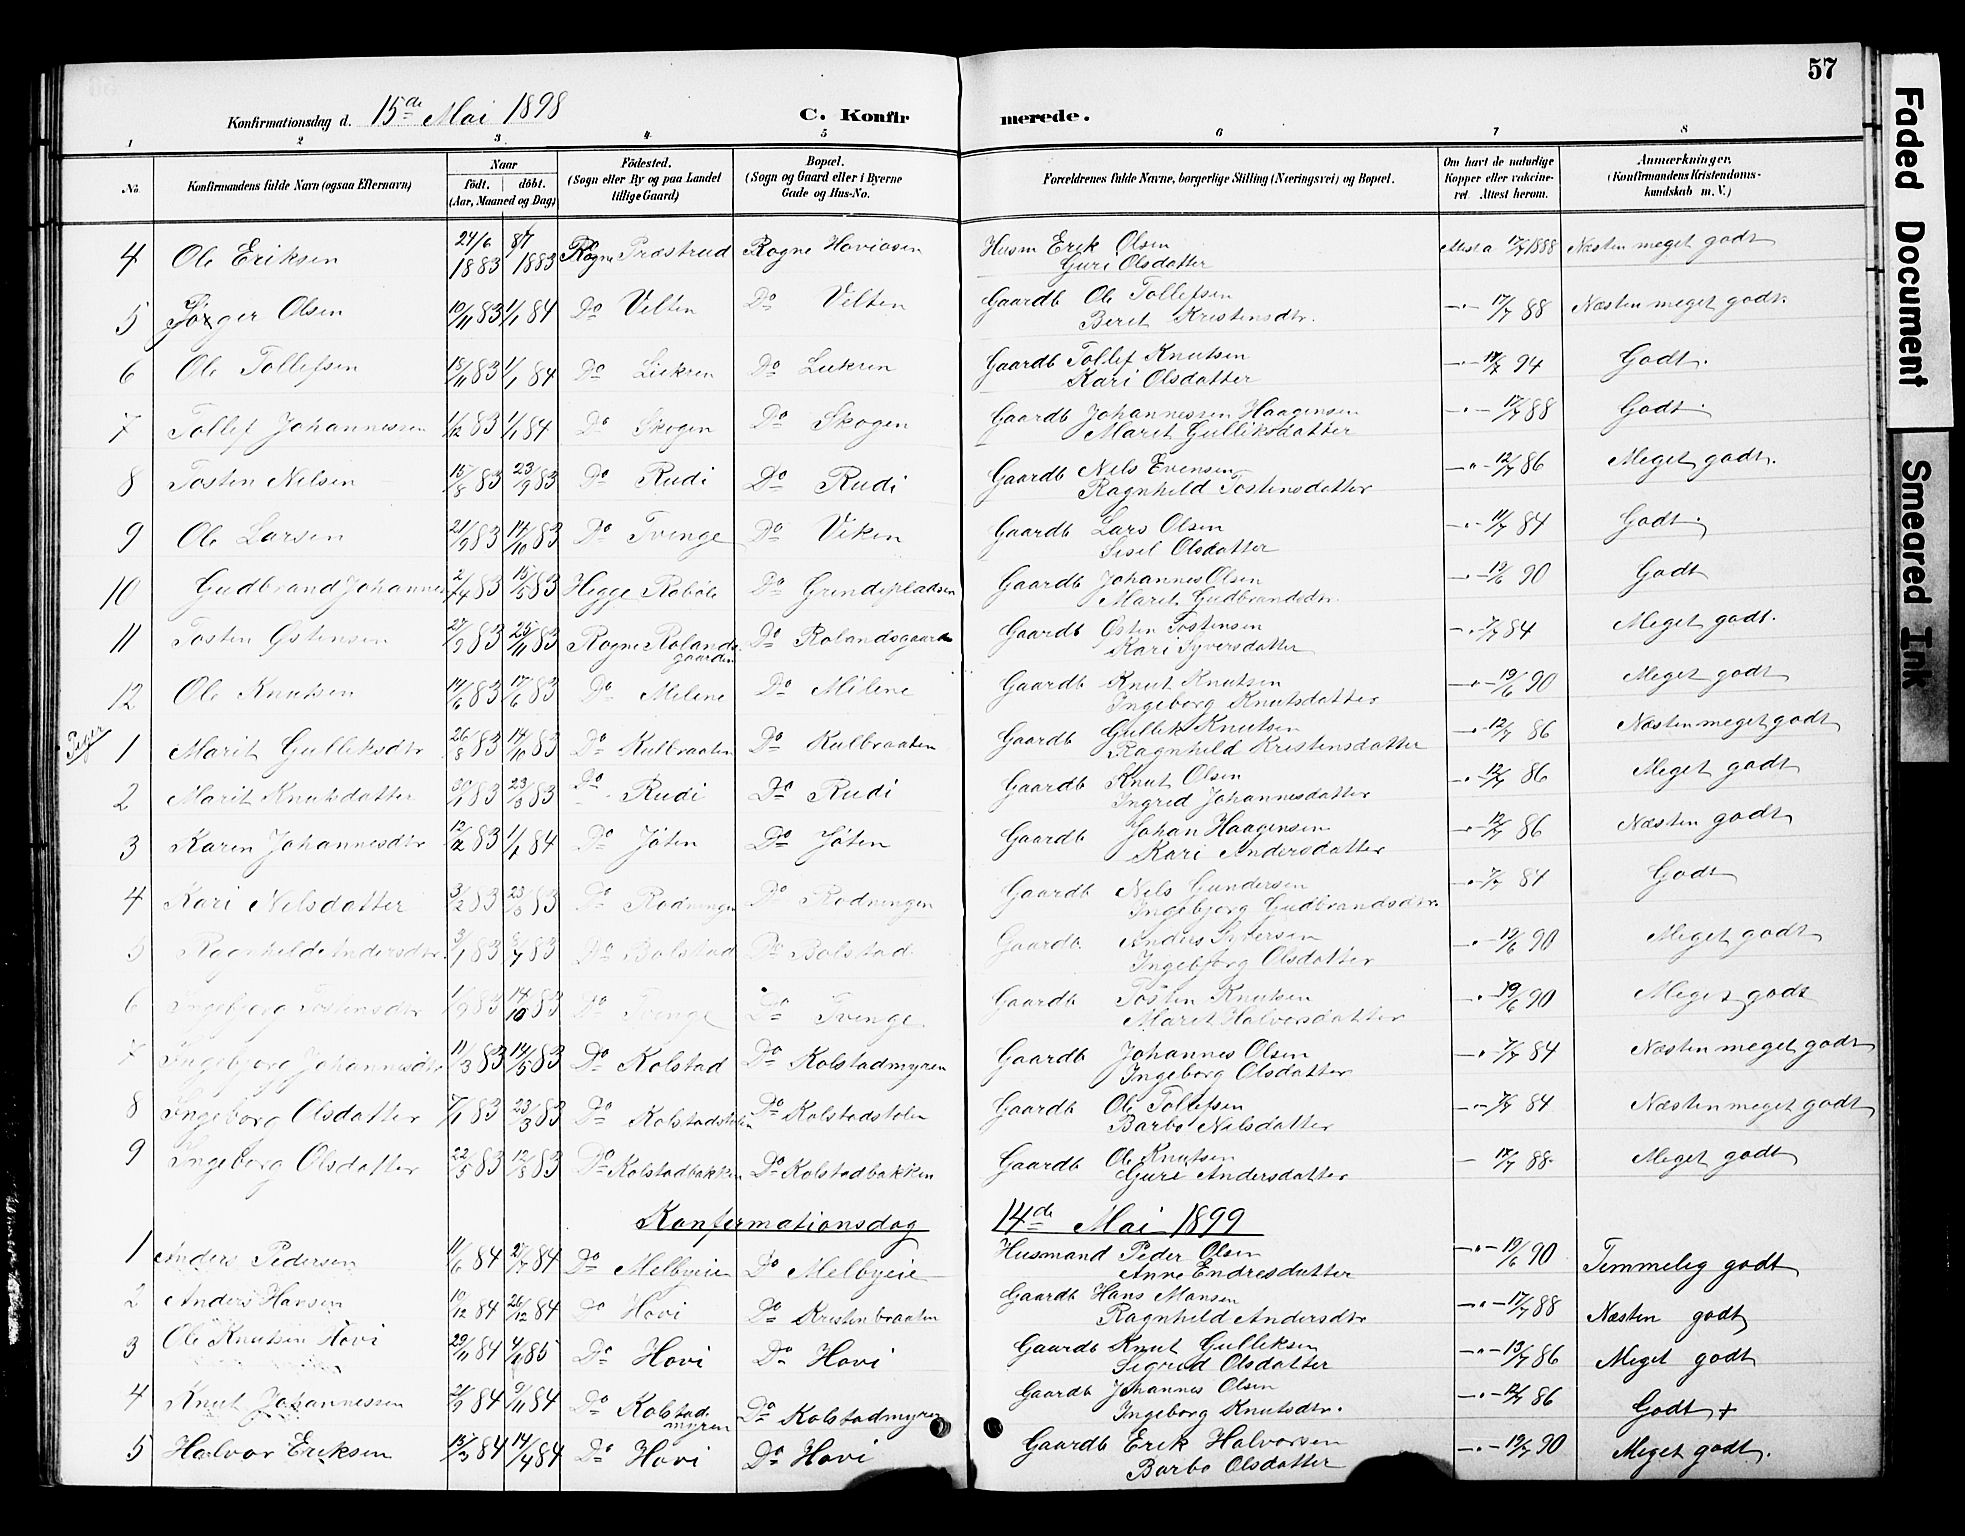 57
Konfirmationsdag d. 15de Mai 1898 C. Konfirmerede.
1 2 3 4 5 6 7 8
No. Konfirmandens fulde Navn (ogsaa Efternavn) Naar födt. döbt. (Aar, Maaned og Dag) Födested. (Sogn eller By og paa Landet tillige Gaard) Bopæl. (Sogn og Gaard eller i Byerne Gade og Hus-No. Forældrenes fulde Navne, borgerlige Stilling (Næringsvei) og Bopæl. Om havt de naturlige Kopper eller vakcineret. Attest herom. Anmærkninger. (Konfirmandens Kristendomskundskab m. V.)
4 Ole Eriksen 24/6 1883 8/7 1883 Rogne Præstrud Rogne Hoviasen Husm Erik Olsen Guri Olsdatter Attest a 17/7 1888 Næsten meget godt
5 Olsen 10/11 83 1/1 84 Do Velten Do Velten Gaardb Ole Tollefsen Berit Kristensdtr. —"— 17/7 88 Næsten meget godt.
6 Ole Tollefsen 15/11 83 1/1 84 Do Liekren Do Liekren Gaardb Tollef Knutsen Kari Olsdatter —"— 94 Godt.
7 Tollef Johannessen 1/12 83 1/1 84 Do Skogen Do Skogen Gaardb Johannessen Haagensen Marit Gulliksdatter —"— 17/7 88 Godt.
8 Tosten Nilsen 15/8 83 23/9 83 Do Rudi Do Rudi Gaardb Nels Evensen Ragnhild Tostensdatter —"— 12/7 86 Meget godt.
9 Ole Larsen 21/9 83 14/10 83 Do Tvenge Do Viken Gaardb Lars Olsen Sisel Olsdatter —"— 84 Godt.
10 Gudbrand Johannes 2/4 83 15/5 83 Hegge Robøle Do Grindepladsen Gaardb Johannes Olsen Marit Gudbrandsdr. —"— 19/6 90 Godt
11 Tosten Østensen 27/9 83 25/11 83 Rogne Rolandsgaarden Do Rolandsgaarden Gaardb Østen Tostensen Kari Syversdatter —"— 7/7 84 Meget godt.
12 Ole Knutsen 14/6 83 17/6 83 Do Milene Do Milene Gaardb Knut Knutsen Ingeborg Knutsdatter —"— 19/6 90 Meget godt
Piger 1 Marit Gulliksdtr 26/8 83 14/10 83 Do Kulbraaten Do Kulbraaten Gaardb Gullik Knutsen Ragnhild Kristensdatter —"— 12/7 86 Næsten meget godt
2 Marit Knutsdatter 30/1 83 23/3 83 Do Rudi Do Rudi Gaardb Knut Olsen Ingrid Johannesdatter —"— 12/7 86 Meget godt
3 Karen Johannesdtr 12/12 83 1/1 84 Do Jøten Do Jøten Gaardb Johan Haagensen Kari Andersdatter —"— 12/7 86 Næsten godt
4 Kari Nelsdatter 3/2 83 23/3 83 Do Rodningen Do Rodningen Gaardb Nels Gundersen Ingebjorg Gudbrandsdtr. —"— 7/7 84 Godt
5 Ragnhilde Andersdtr 3/1 83 83 Do Bolstad Do Bolstad Gaardb. Anders Syversen Ingebjørg Olsdatter —"— 19/6 90 Meget godt
6 Ingebjorg Tostensdtr 1/9 83 14/10 83 Do Tvenge Do Tvenge Gaardb Tosten Knutsen Marit Halvorsdatter —"— 19/6 90 Meget godt
7 Ingebjorg Johannesdtr 11/3 83 14/5 83 Do Kolstad Do Kolstadmyren Gaardb Johannes Olsen Ingeborg Olsdatter —"— 7/7 84 Næsten meget godt
8 Ingeborg Olsdatter 7/1 83 23/3 83 Do Kolstadstolen Do Kolstadstolen Gaardb Ole Tollefsen Barbo Nelsdatter —"— 7/7 84 Næsten meget godt
9 Ingeborg Olsdatter 22/5 83 12/8 83 Do Kolstadbakken Do Kolstadbakken Gaardb Ole Knutsen Guri Andersdatter — 17/7 88. Meget godt
Konfirmationsdag 14de Mai 1899
1 Anders Pedersen 11/6 84 27/7 84 Do Melbyeie Do Melbyeie Husmand Peder Olsen Anne Endresdatter —"— 19/6 90 Temmelig godt
2 Anders Hansen 10/12 84 26/12 84 Do Hovi Do Kristenbraaten Gaardb Hans Monsen Ragnhild Andersdtr —"— 17/7 88 Næsten godt
3 Ole Knutsen Hovi 29/11 84 4/1 85 Do Hovi Do Hovi Gaardb Knut Gulliksen Sigrid Olsdatter —"— 86 Meget godt
4 Knut Johannessen 21/9 84 9/11 84 Do Kolstadmyren Do Kolstadmyren Gaardb Johannes Olsen Ingeborg Knutsdtr. —"— 12/7 86 Godt +
5 Halvor Eriksen 15/3 84 14/4 84 Do Hovi Do Hovi Gaardb Erik Halvorsen Barbo Olsdatter —"— 90 Meget godt.
Faded Document
Smeared Ink